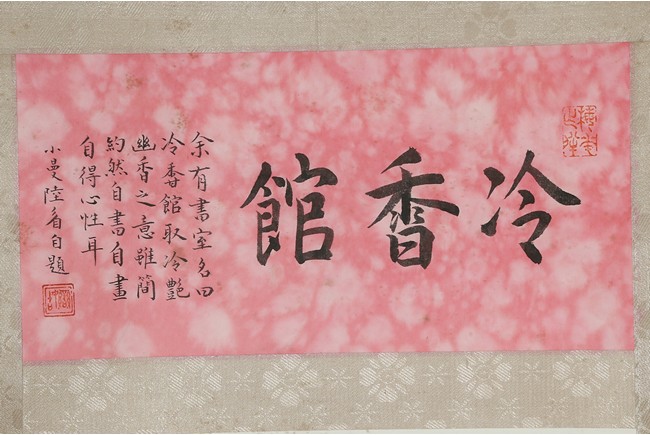 冷香館
余有書室名曰
冷香館取冷艷
幽香之意雖簡
約然自書自畫
自得心性耳
小曼陸眉自題